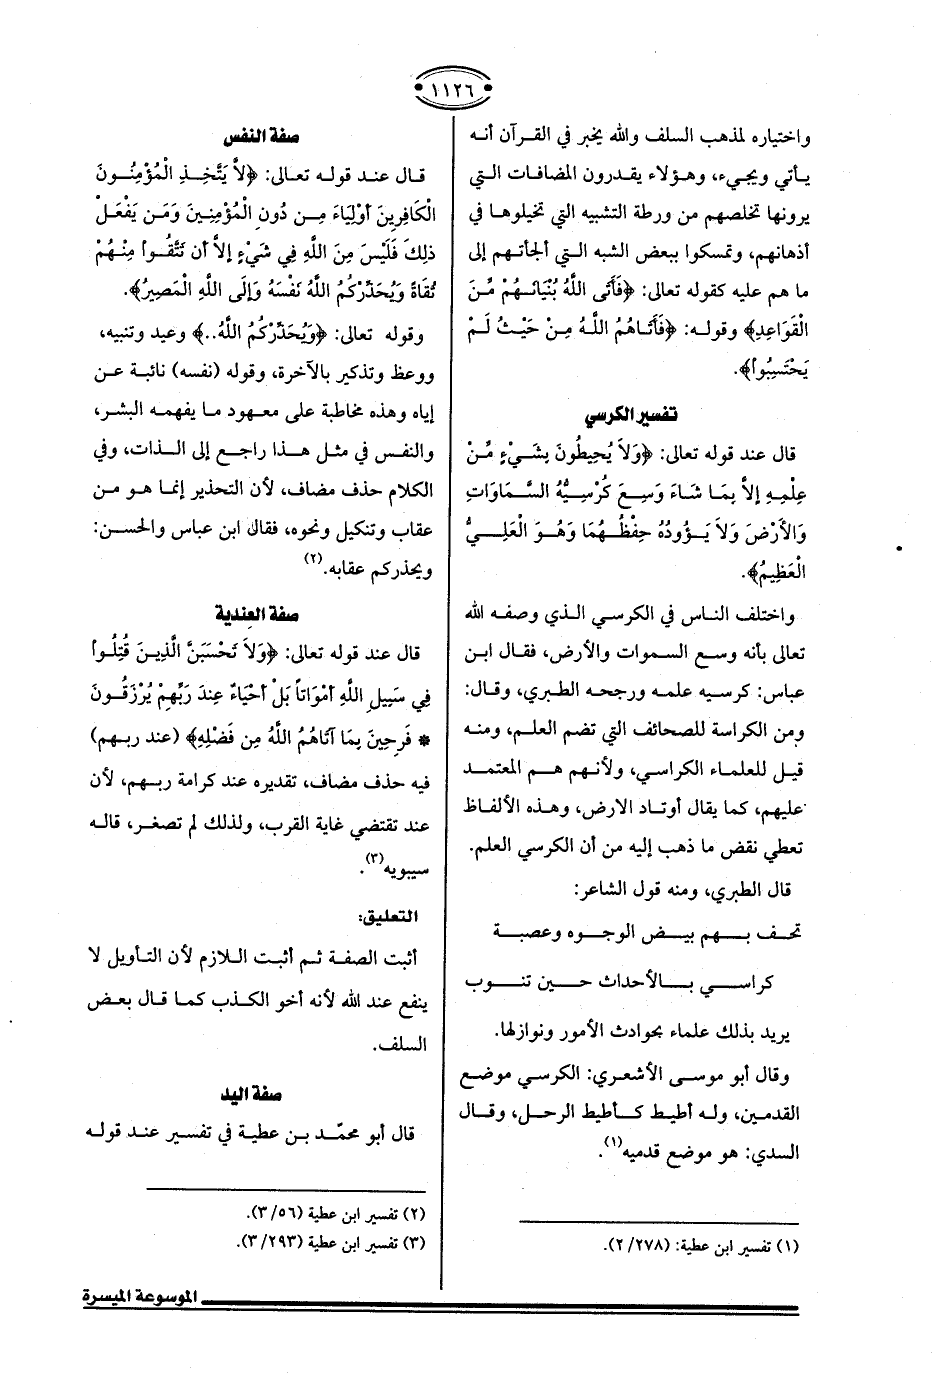 ١١٢٦
واختياره لمذهب السلف والله يخبر في القرآن أنه
يأتي ويجيء، وهؤلاء يقدرون المضافات التي
يرونها تخلصهم من ورطة التشبيه التي تخيلوها في
أذهانهم، وتمسكوا ببعض الشبه التي ألجأتهم إلى
ما هم عليه كقوله تعالى: ﴿فَأَتَى اللَّهُ بُنْيَانَهُم مِّنَ
الْقَوَاعِدِ﴾ وقوله: ﴿فَأَتَاهُمُ اللَّهُ مِنْ حَيْثُ لَمْ
يَحْتَسِبُوا﴾.
تفسير الكرسي
قال عند قوله تعالى: ﴿وَلاَ يُحِيطُونَ بِشَيْءٍ مِّنْ
عِلْمِهِ إِلاَّ بِمَا شَاءَ وَسِعَ كُرْسِيُّهُ السَّمَاوَاتِ
وَالأَرْضَ وَلاَ يَؤُودُهُ حِفْظُهُمَا وَهُوَ الْعَلِيُّ
الْعَظِيمُ﴾.
واختلف الناس في الكرسي الذي وصفه الله
تعالى بأنه وسع السموات والأرض، فقال ابن
عباس: كرسيه علمه ورجحه الطبري، وقال:
ومن الكراسة للصحائف التي تضم العلم، ومنه
قيل للعلماء الكراسي، ولأنهم هم المعتمد
عليهم، كما يقال أوتاد الارض، وهذه الألفاظ
تعطي نقض ما ذهب إليه من أن الكرسي العلم.
قال الطبري، ومنه قول الشاعر:
تحف بهم بيض الوجوه وعصبة
كراسي بالأحداث حين تنوب
يريد بذلك علماء بحوادث الأمور ونوازلها.
وقال أبو موسى الأشعري: الكرسي موضع
القدمين، وله أطيط كأطيط الرحل، وقال
السدي: هو موضع قدميه(١).
(١) تفسير ابن عطية: (٢/٢٧٨).
صفة النفس
قال عند قوله تعالى: ﴿لاَّ يَتَّخِذِ الْمُؤْمِنُونَ
الْكَافِرِينَ أَوْلِيَاءَ مِن دُونِ الْمُؤْمِنِينَ وَمَن يَفْعَلْ
ذَلِكَ فَلَيْسَ مِنَ اللَّهِ فِي شَيْءٍ إِلاَّ أَن تَتَّقُوا مِنْهُمْ
تُقَاةً وَيُحَذِّرُكُمُ اللَّهُ نَفْسَهُ وَإِلَى اللَّهِ الْمَصِيرُ﴾.
وقوله تعالى: ﴿وَيُحَذِّرُكُمُ اللَّهُ..﴾ وعيد وتنبيه،
ووعظ وتذكير بالآخرة، وقوله (نفسه) نائبة عن
إياه وهذه مخاطبة على معهود ما يفهمه البشر،
والنفس في مثل هذا راجع إلى الذات، وفي
الكلام حذف مضاف، لأن التحذير إنما هو من
عقاب وتنكيل ونحوه، فقال ابن عباس والحسن:
ويحذركم عقابه.(٢)
صفة العندية
قال عند قوله تعالى: ﴿وَلاَ تَحْسَبَنَّ الَّذِينَ قُتِلُوا
فِي سَبِيلِ اللَّهِ أَمْوَاتاً بَلْ أَحْيَاءٌ عِندَ رَبِّهِمْ يُرْزَقُونَ
* فَرِحِينَ بِمَا آتَاهُمُ اللَّهُ مِن فَضْلِهِ﴾ (عند ربهم)
فيه حذف مضاف، تقديره عند كرامة ربهم، لأن
عند تقتضي غاية القرب، ولذلك لم تصغر، قاله
سيبويه(٣).
التعليق:
أثبت الصفة ثم أثبت اللازم لأن التأويل لا
ينفع عند الله لأنه أخو الكذب كما قال بعض
السلف.
صفة اليد
قال أبو محمّد بن عطية في تفسير عند قوله
(٢) تفسير ابن عطية (٣/٥٦).
(٣) تفسير ابن عطية (٣/٢٩٣).
الموسوعة الميسرة